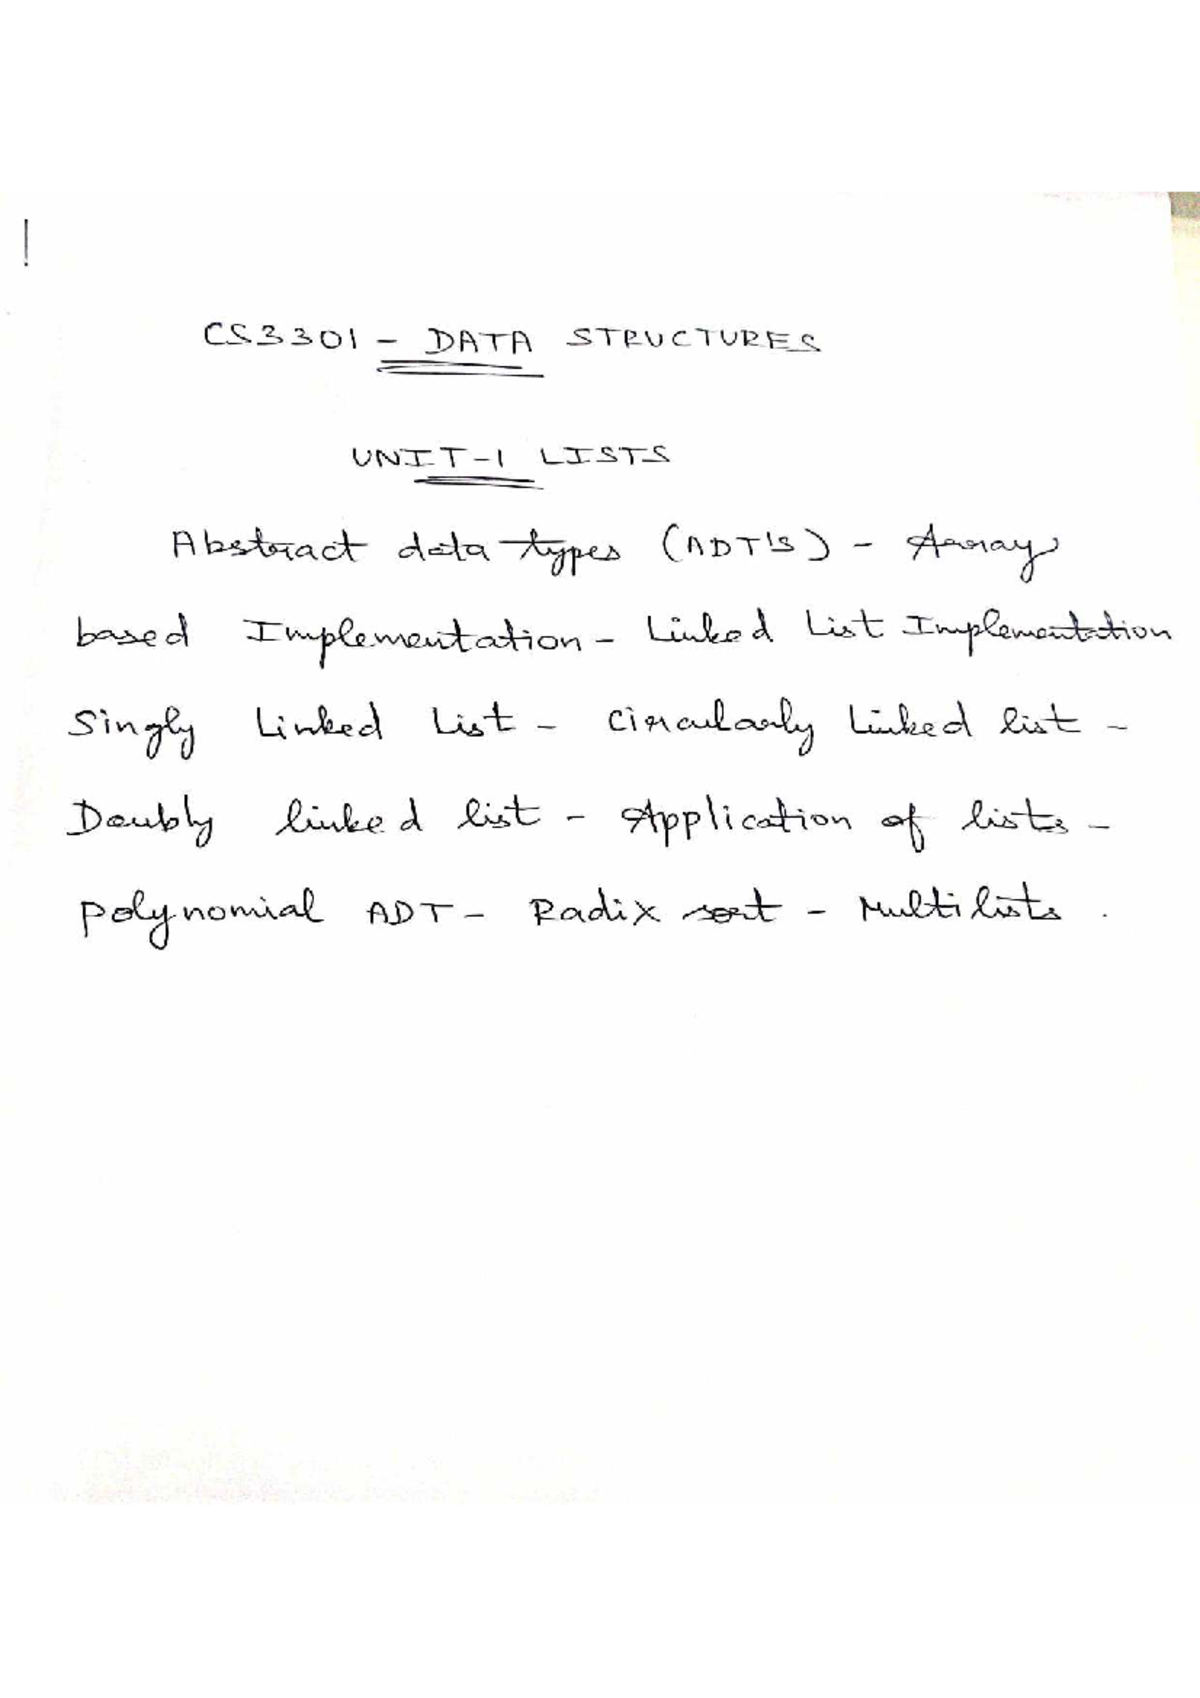 CS3301 - DATA STRUCTURES
UNIT-1 LISTS
Abstract data types (ADT'S) - Array
based Implementation - Linked List Implementation
Singly Linked List - Circularly linked list -
Doubly linked list - Application of lists -
Polynomial ADT - Radix sort - Multilists .